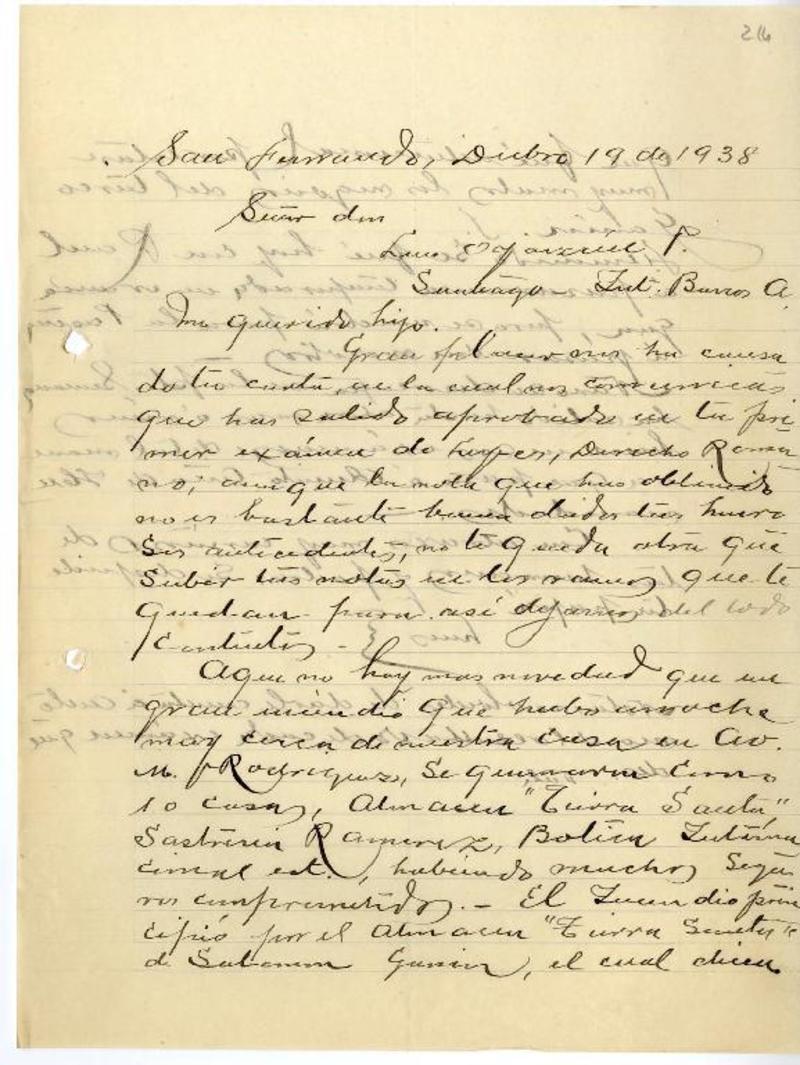 216
San Fernando, Dicbre 19 de 1938
Señor don
Luis Oyarzún P.
Santiago - Int. Barros A.
Mi querido hijo.
Gran placer nos ha causa
do tu carta, en la cual nos comunicas
que has salido aprobado en tu pri
mer exámen de Leyes, Derecho Roma
no; aunque la nota que has obtenido
no es bastante buena dados tus
antecedentes, no te queda otra que
Subir tus notas en los ramos que te
quedan para así dejarnos del todo
contentos -
Aqui no hay mas novedad que un
gran incendio que hubo anoche
muy cerca de nuestra casa en Av.
M. Rodriguez, se quemaron como
10 casas, Almacen "Tierra Santa",
Sastreria Ramirez, Botica Interna
cional ect., habiendo muchos segu
ros comprometidos. - El Incendio prin
cipió por el Almacen "Tierra Santa"
de, el cual dicen